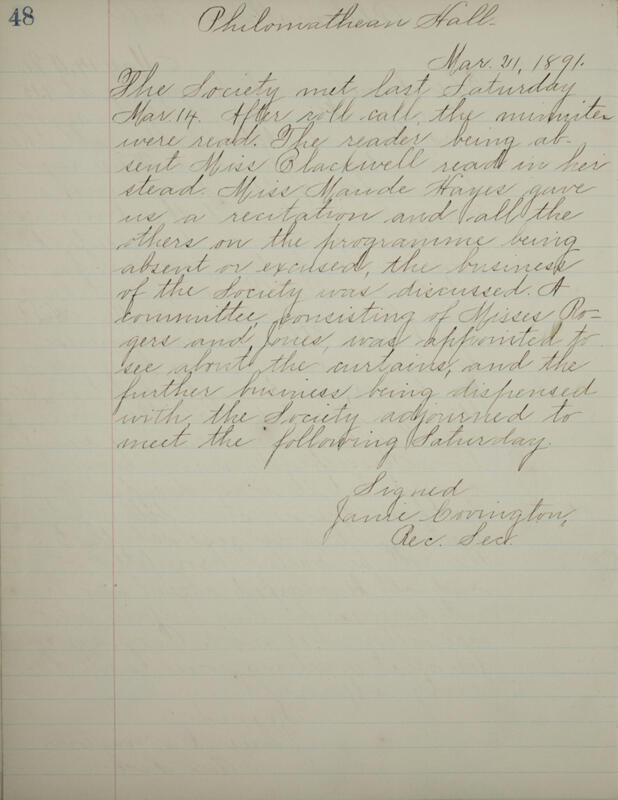 48
Philomathean Hall.
Mar. 21, 1891.
The Society met last Saturday
Mar. 14. After roll call, the minutes
were read. The reader being ab-
sent Miss Blackwell read in her
stead. Miss Maude Hayes gave
us a recitation and all the
others on the programme being
absent or excused, the business
of the Society was discussed. A
committee, consisting of Misses Ro-
gers and Jones, was appointed to
see about the curtains, and the
further business being dispensed
with, the Society adjourned to
meet the following Saturday.
Signed
Janie Covington,
Rec. Sec.